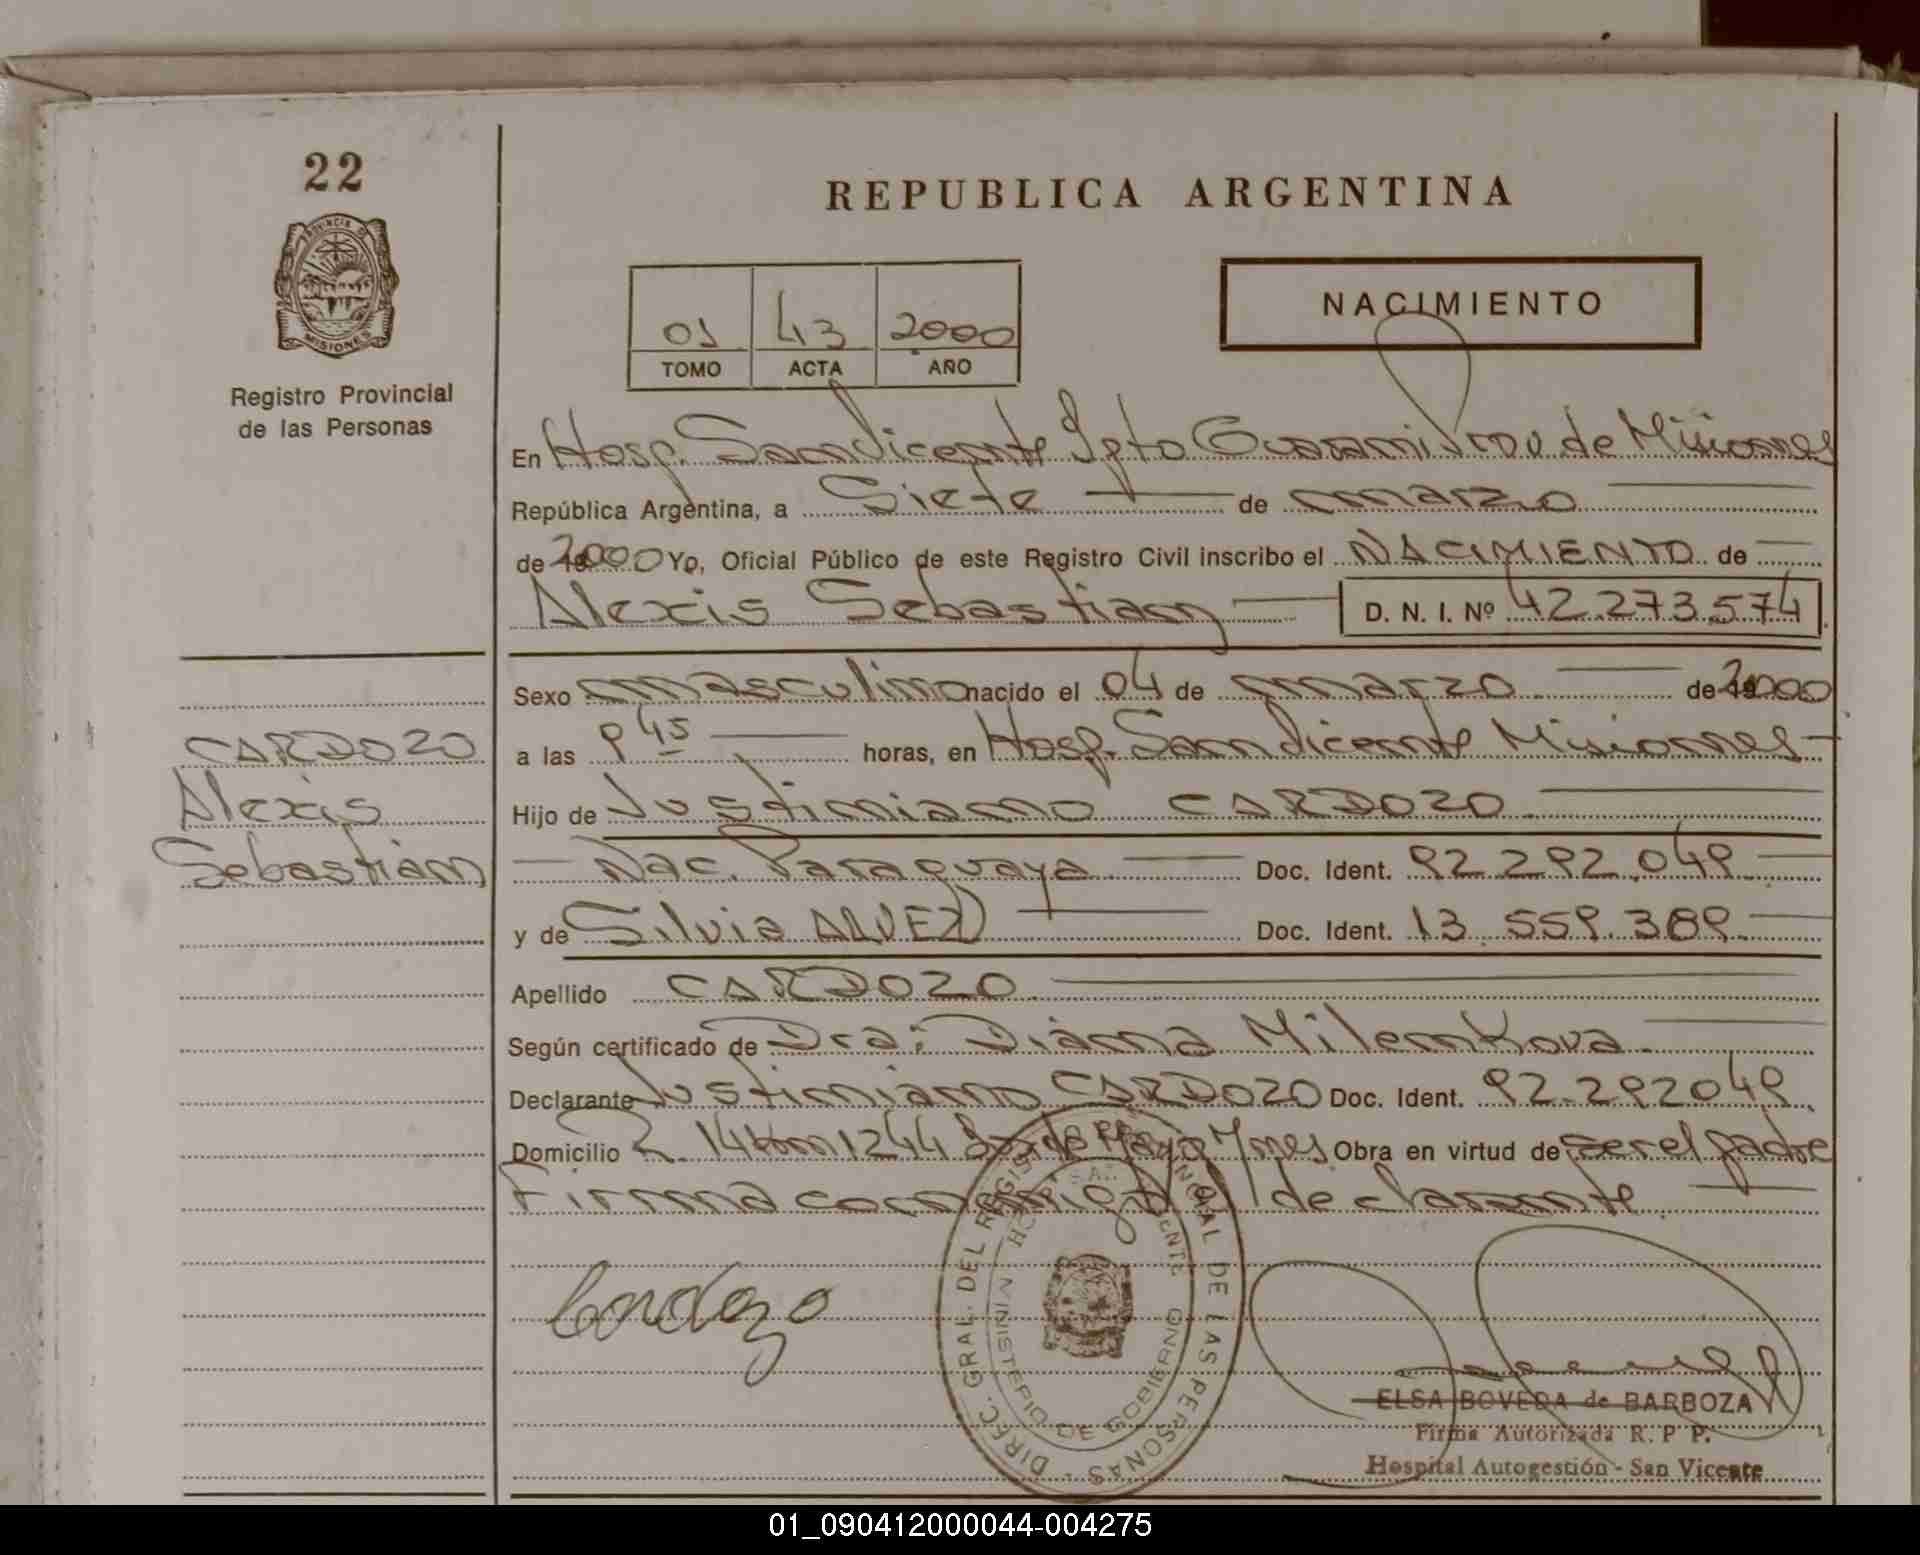 22
PROVINCIA DE
MISIONES
Registro Provincial
de las Personas
REPUBLICA ARGENTINA
01 43 2000
TOMO ACTA AÑO
NACIMIENTO
En Hosp. San Vicente Dpto Guarani Prov. de Misiones
República Argentina, a Siete de marzo
de 2000 Yo, Oficial Público de este Registro Civil inscribo el NACIMIENTO de
Alexis Sebastian D. N. I. Nº 42.273.574
Sexo masculino nacido el 04 de marzo de 2000
a las 9 45 horas, en Hosp. San Vicente Misiones
Hijo de Justiniano CARDOZO
Nac. Paraguaya Doc. Ident. 92.292.049
y de Silvia ALVEZ Doc. Ident. 13.559.389
Apellido CARDOZO
Según certificado de Dra: Diana Milenkova
Declarante Justiniano CARDOZO Doc. Ident. 92.292049
Domicilio R. 14 km 1244 de Mayo Mnes Obra en virtud de ser el padre
Firma conmigo el declarante
CARDOZO
Alexis
Sebastian
Cardozo
DIREC. GRAL. DEL DE LAS PERSONAS
MINISTERIO DE GOBIERNO
ELSA BOVEDA de BARBOZA
Firma Autorizada R. P P.
Hospital Autogestión - San Vicente
01_090412000044-004275